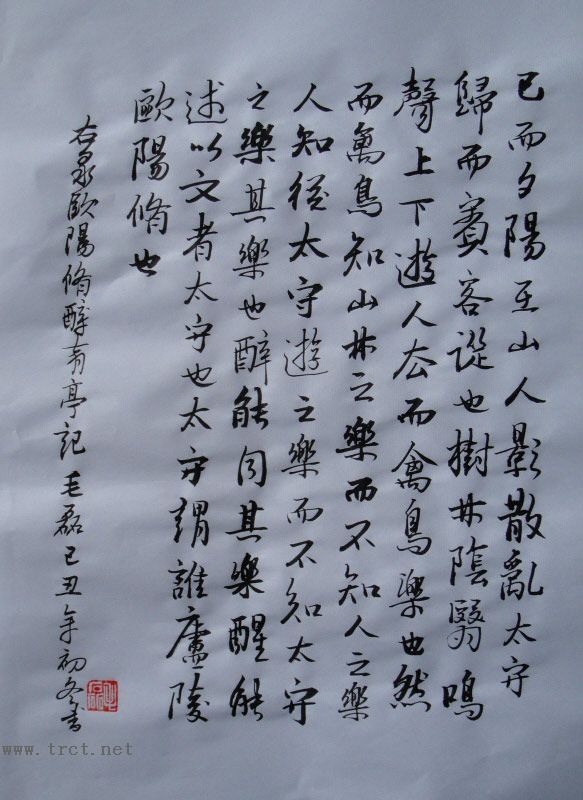 已而夕陽在山人影散亂太守
歸而賓客從也樹林陰翳鳴
聲上下遊人去而禽鳥樂也然
而禽鳥知山林之樂而不知人之樂
人知從太守遊之樂而不知太守
之樂其樂也醉能同其樂醒能
述以文者太守也太守謂誰廬陵
歐陽脩也
右录歐陽脩醉翁亭記 毛磊己丑年初冬書
www.trct.net